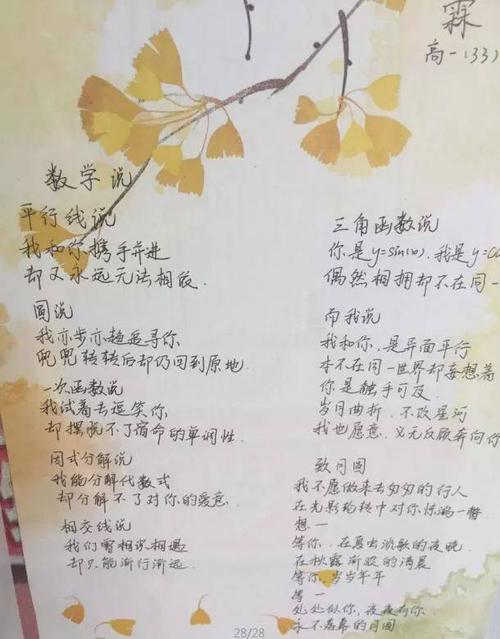 霖
高一(33)
数学说
平行线说
我和你携手并进
却又永远无法相依
圆说
我亦步亦趋追寻你
兜兜转转后却仍回到原地
一次函数说
我试着去逗笑你
却摆脱不了宿命的单调性
因式分解说
我能分解代数式
却分解不了对你的爱意
相交线说
我们曾相识相遇
却只能渐行渐远
三角函数说
你是y=sin(x),我是y=co
偶然相拥却不在同一
而我说
我和你,是异面平行
本不在同一世界却妄想着
你是触手可及
岁月曲折,不改星河
我也愿意,义无反顾奔向你
致月圆
我不愿做来去匆匆的行人
在光影轮转中对你惊鸿一瞥
想一
等你,在夏虫浅歌的夜晚
在秋露渐晞的清晨
等你,岁岁年年
等一
处处似你,夜夜有你
永不落幕的月圆
28/28